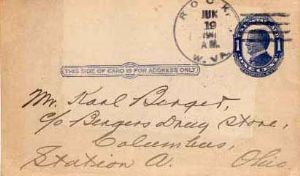 ROCK,
JUN
19
A.M.
W. VA.
1 1
THIS SIDE OF CARD IS FOR ADDRESS ONLY
Mr. Karl Berger,
c/o Bergers Drug Store,
Columbus,
Station A. Ohio